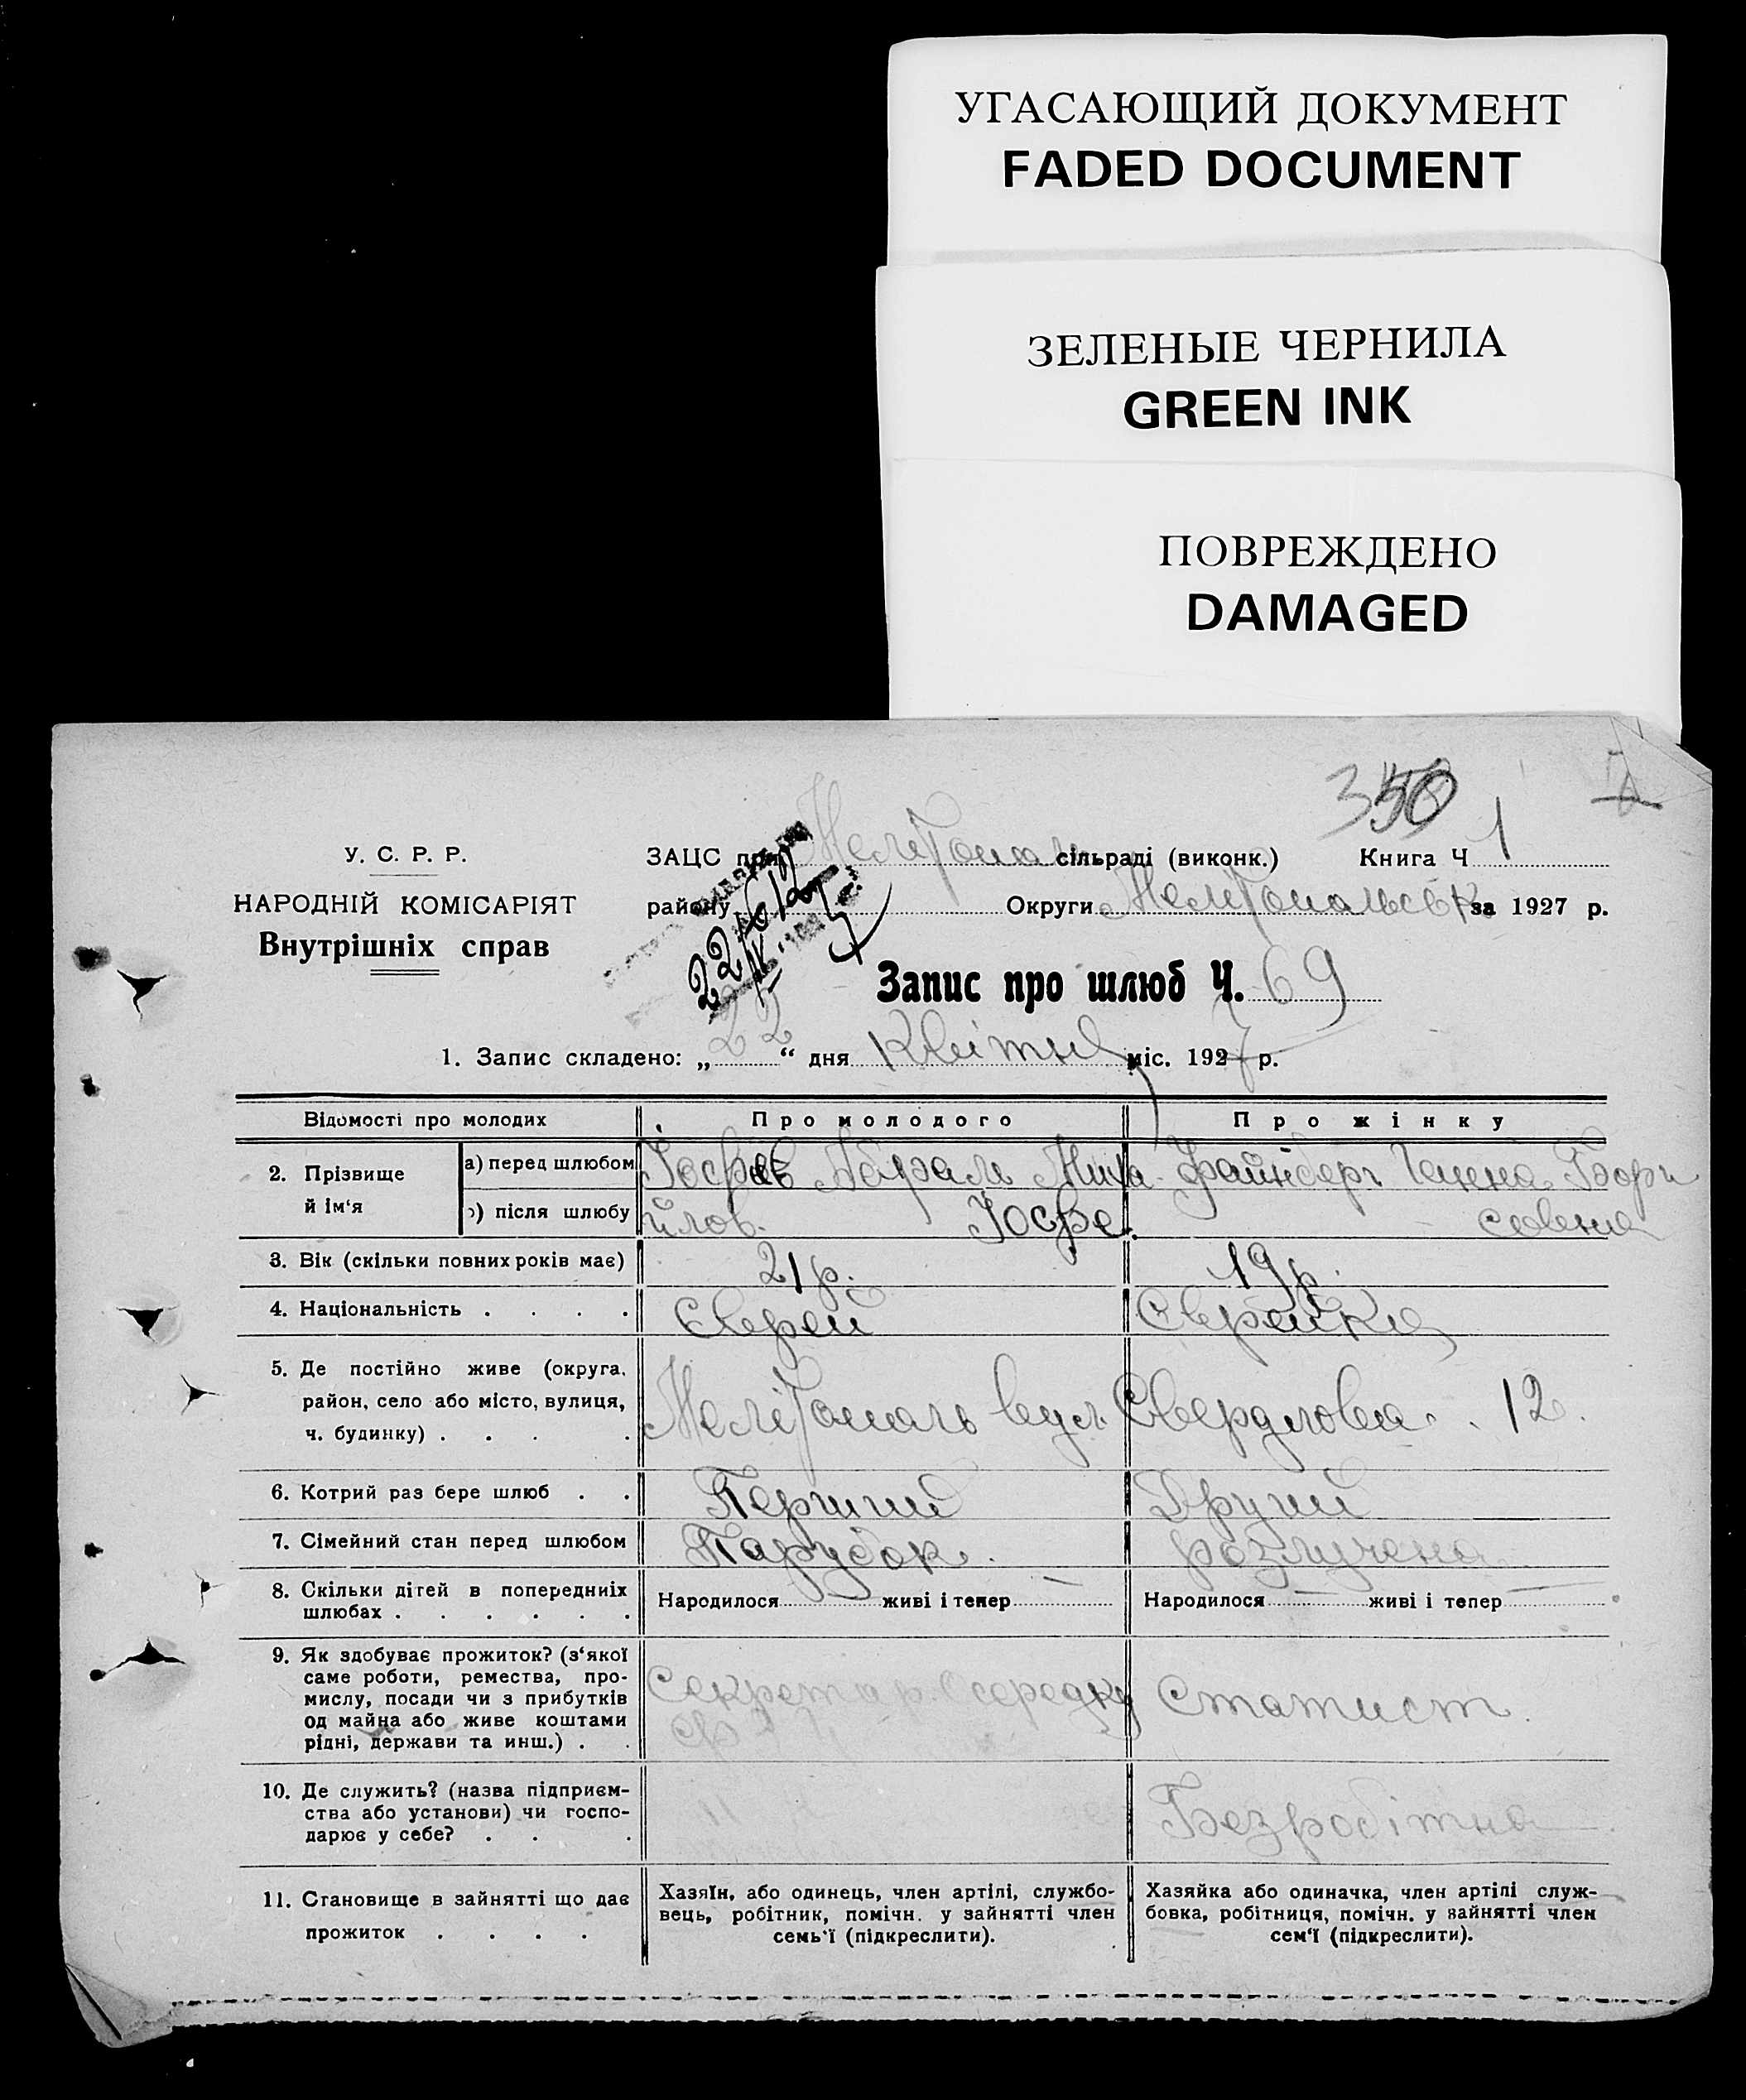 УГАСАЮЩИЙ ДОКУМЕНТ
FADED DOCUMENT
ЗЕЛЕНЫЕ ЧЕРНИЛА
GREEN INK
ПОВРЕЖДЕНО
DAMAGED
350
У. С. Р. Р.
НАРОДНІЙ КОМІСАРІЯТ
Внутрішніх справ
ЗАЦС при Мелітопол сільраді (виконк.) Книга Ч 1
району Округи Мелітопольськ за 1927 р.
22
Запис про шлюб Ч. 69
1. Запис складено: „22“ дня Квітня міс. 1927 р.
Відомості про молодих Про молодого Про жінку
2. Прізвище й ім'я
а) перед шлюбом Йосфе Абрам Миха- Файнберг Бори
б) після шлюбу йлов. Йосфе. совена
3. Вік (скільки повних років має) 21 р. 19 р.
4. Національність . . . . Єврей Єврейка
5. Де постійно живе (округа,
район, село або місто, вулиця,
ч. будинку) . . . .
Мелітополь вул. Свердлова . 12.
6. Котрий раз бере шлюб . . Перший Другий
7. Сімейний стан перед шлюбом Парубок. розлучена
8. Скільки дітей в попередніх
шлюбах . . . . . .
Народилося — живі і тепер — Народилося — живі і тепер —
9. Як здобуває прожиток? (з'якої
саме роботи, ремества, про-
мислу, посади чи з прибутків
од майна або живе коштами
рідні, держави та инш.) . .
Секретар Осередку
Статист.
10. Де служить? (назва підприєм-
ства або установи) чи госпо-
дарює у себе? . . .
Безробітна
11. Становище в зайнятті що дає
прожиток . . . .
Хазяїн, або одинець, член артілі, службо-
вець, робітник, помічн. у зайнятті член
семь'ї (підкреслити).
Хазяйка або одиначка, член артілі служ-
бовка, робітниця, помічн. у зайнятті член
сем'ї (підкреслити).